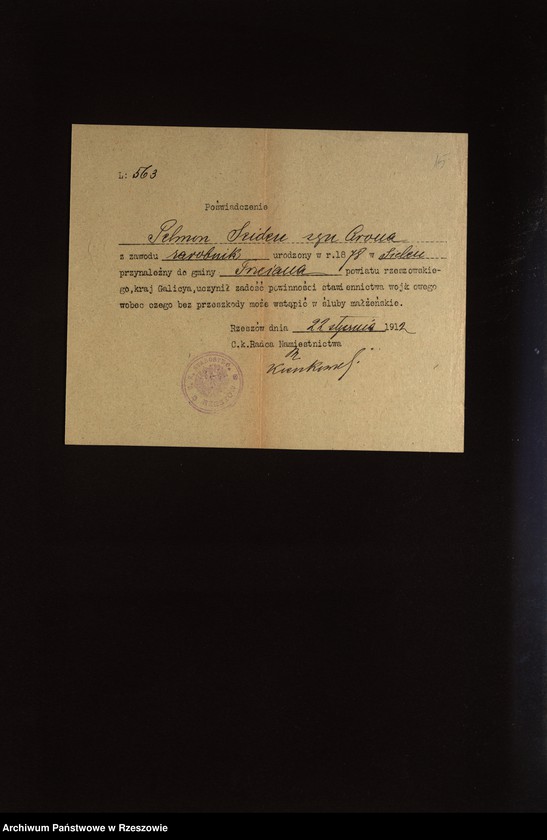 L: 563
Poświadczenie
Selmon Seiden syn Arona
z zawodu zarobnik urodzony w r.1878 w
przynależny do gminy Trzciana powiatu rzeszowskie-
go,kraj Galicya,uczynił zadość powinności stawiennictwa wojk owego
wobec czego bez przeszkody może wstąpić w śluby małżeńskie.
Rzeszów dnia 22 stycznia 1912
C.k.Radca Namiestnictwa
Archiwum Państwowe w Rzeszowie